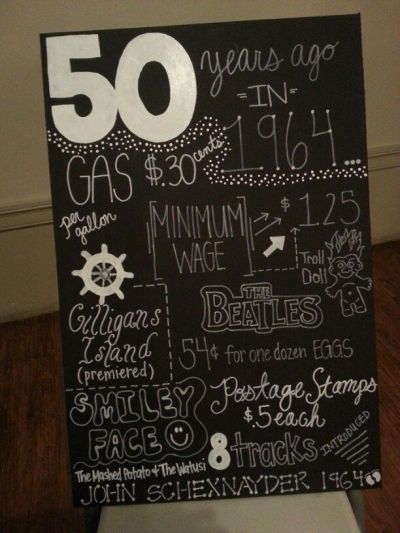 50 years ago
=IN=
1964...
GAS $.30 cents
per gallon
MINIMUM WAGE
$1.25
Troll Doll
Gilligans Island
(premiered)
THE BEATLES
54¢ for one dozen EGGS
Postage Stamps
$.5 each
SMILEY FACE
8 tracks INTRODUCED
The Mashed Potato & The Watusi
JOHN SCHEXNAYDER 1964